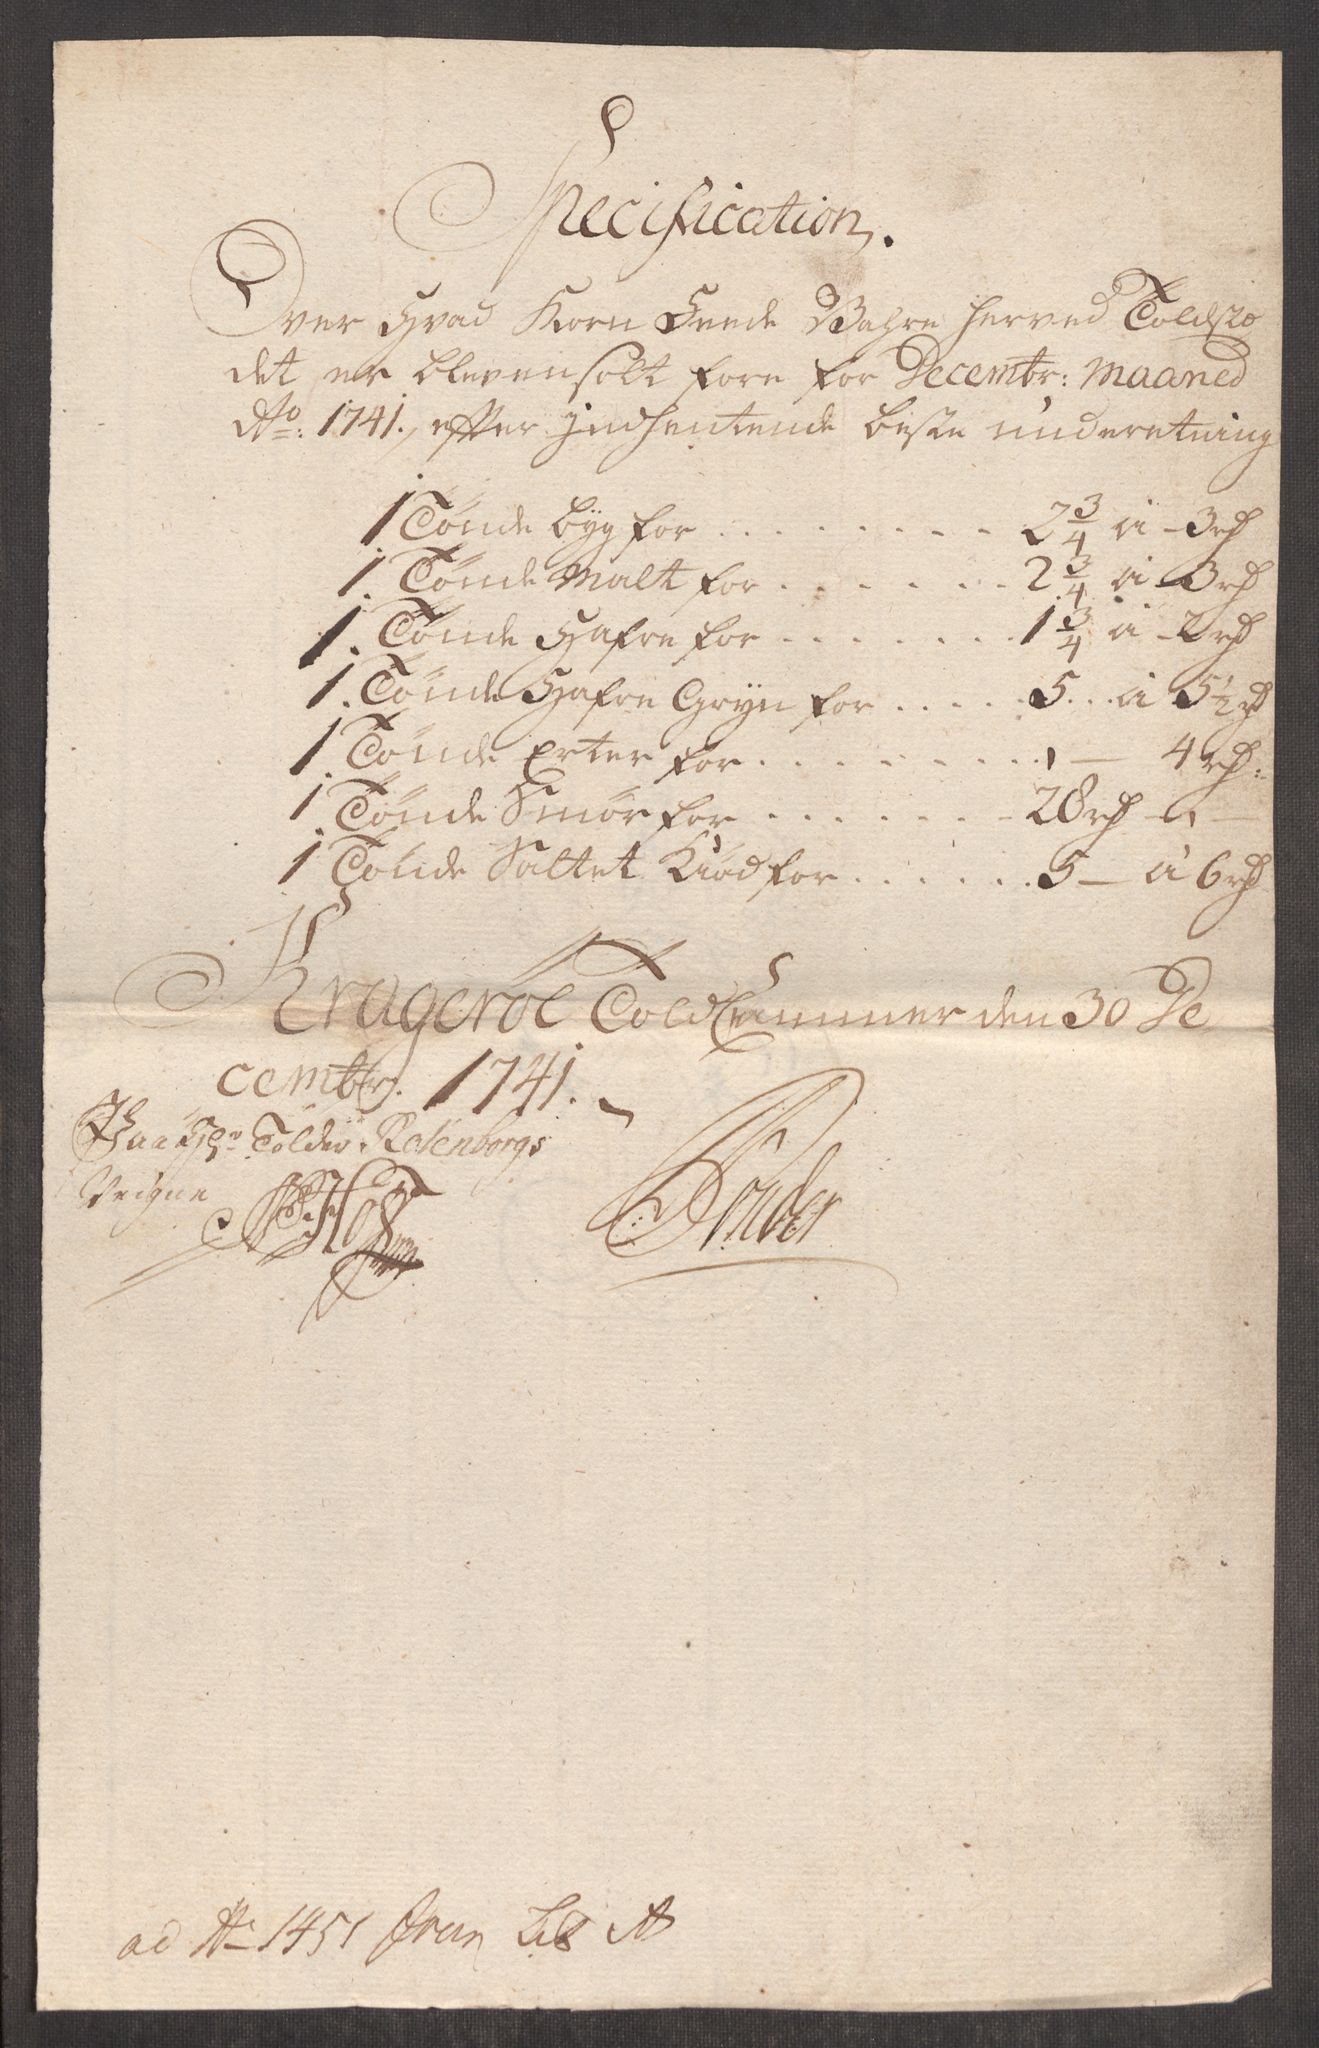 Specification.
Over Hvad Korn Feede Vahre herved Toldstæ
det er bleven solt fore for Decembr: Maaned
Ao: 1741., efter Indhentende beste underetning
1 Tønde byg for . . . . . . . . 2 3/4 à 3 rd
1. Tønde Malt for . . . . . . . 2 3/4 à 3 rd
1. Tønde Hafre for . . . . . . . 1 3/4 à 2 rd
1. Tønde Hafre Gryn for . . . . . 5 . . à 5 1/2 rd
1 Tønde Erter for . . . . . . . . . — 4 rd:
1. Tønde Smør for . . . . . . . 28 rd — „ —
1 Tønde Saltet Kiød for . . . . . . 5 — à 6 rd
Kragerøe Told Cammer den 30 De
cembr. 1741.
Paa Hr Tolder Rosenborgs
Veigne
ad No 1451 Lit A